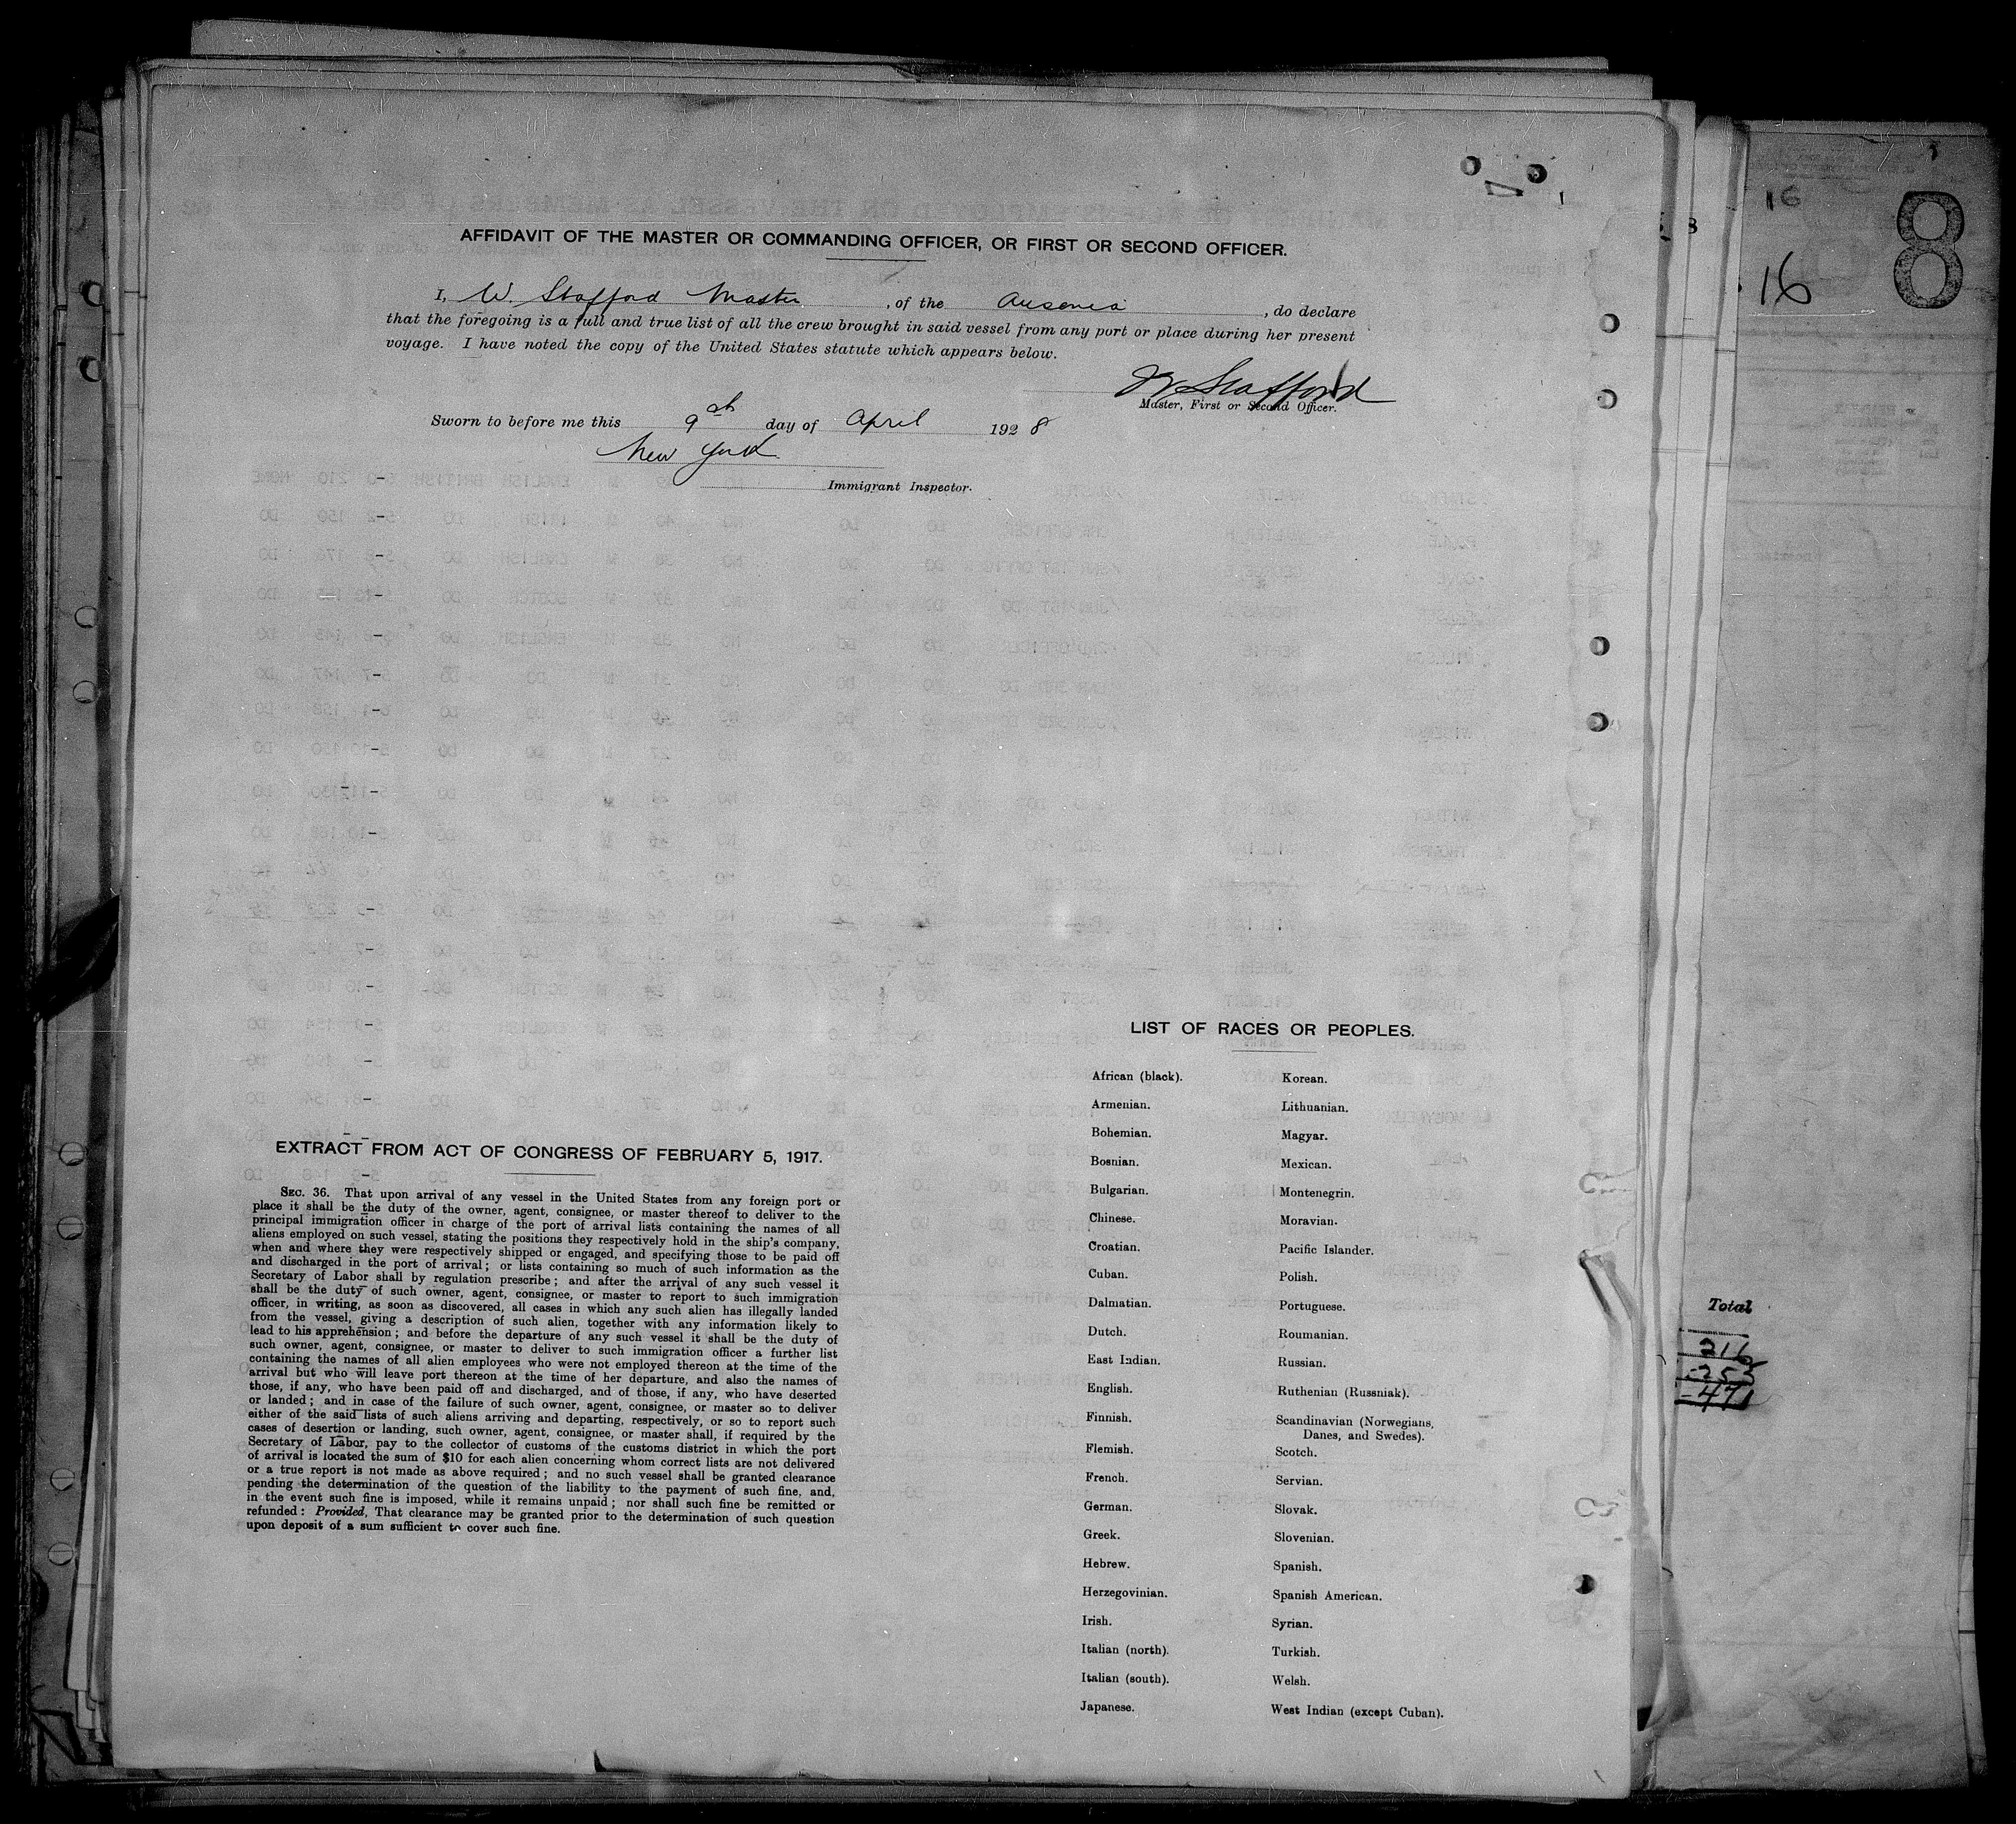 AFFIDAVIT OF THE MASTER OR COMMANDING OFFICER, OR FIRST OR SECOND OFFICER.
I, W. Stafford Master , of the Ausonia , do declare
that the foregoing is a full and true list of all the crew brought in said vessel from any port or place during her present
voyage. I have noted the copy of the United States statute which appears below.
W Stafford
Master, First or Second Officer.
Sworn to before me this 9th day of April 1928
New York
Immigrant Inspector.
EXTRACT FROM ACT OF CONGRESS OF FEBRUARY 5, 1917.
SEC. 36. That upon arrival of any vessel in the United States from any foreign port or
place it shall be the duty of the owner, agent, consignee, or master thereof to deliver to the
principal immigration officer in charge of the port of arrival lists containing the names of all
aliens employed on such vessel, stating the positions they respectively hold in the ship's company,
when and where they were respectively shipped or engaged, and specifying those to be paid off
and discharged in the port of arrival; or lists containing so much of such information as the
Secretary of Labor shall by regulation prescribe; and after the arrival of any such vessel it
shall be the duty of such owner, agent, consignee, or master to report to such immigration
officer, in writing, as soon as discovered, all cases in which any such alien has illegally landed
from the vessel, giving a description of such alien, together with any information likely to
lead to his apprehension; and before the departure of any such vessel it shall be the duty of
such owner, agent, consignee, or master to deliver to such immigration officer a further list
containing the names of all alien employees who were not employed thereon at the time of the
arrival but who will leave port thereon at the time of her departure, and also the names of
those, if any, who have been paid off and discharged, and of those, if any, who have deserted
or landed; and in case of the failure of such owner, agent, consignee, or master so to deliver
either of the said lists of such aliens arriving and departing, respectively, or so to report such
cases of desertion or landing, such owner, agent, consignee, or master shall, if required by the
Secretary of Labor, pay to the collector of customs of the customs district in which the port
of arrival is located the sum of $10 for each alien concerning whom correct lists are not delivered
or a true report is not made as above required; and no such vessel shall be granted clearance
pending the determination of the question of the liability to the payment of such fine, and,
in the event such fine is imposed, while it remains unpaid; nor shall such fine be remitted or
refunded: Provided, That clearance may be granted prior to the determination of such question
upon deposit of a sum sufficient to cover such fine.
LIST OF RACES OR PEOPLES.
African (black).
Armenian.
Bohemian.
Bosnian.
Bulgarian.
Chinese.
Croatian.
Cuban.
Dalmatian.
Dutch.
East Indian.
English.
Finnish.
Flemish.
French.
German.
Greek.
Hebrew.
Herzegovinian.
Irish.
Italian (north).
Italian (south).
Japanese.
Korean.
Lithuanian.
Magyar.
Mexican.
Montenegrin.
Moravian.
Pacific Islander.
Polish.
Portuguese.
Roumanian.
Russian.
Ruthenian (Russniak).
Scandinavian (Norwegians,
Danes, and Swedes).
Scotch.
Servian.
Slovak.
Slovenian.
Spanish.
Spanish American.
Syrian.
Turkish.
Welsh.
West Indian (except Cuban).
8
16
16
8
Total
216
471